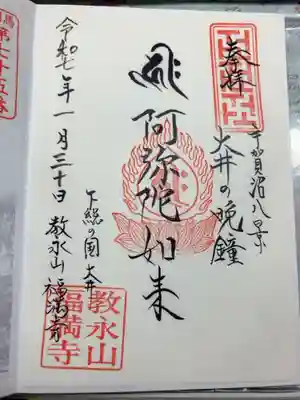 奉拝
手賀沼八景
大井の晩鐘
阿弥陀如来
下総の国 大井
教永山 福満寺
令和七年一月三十日
教永山
福満寺